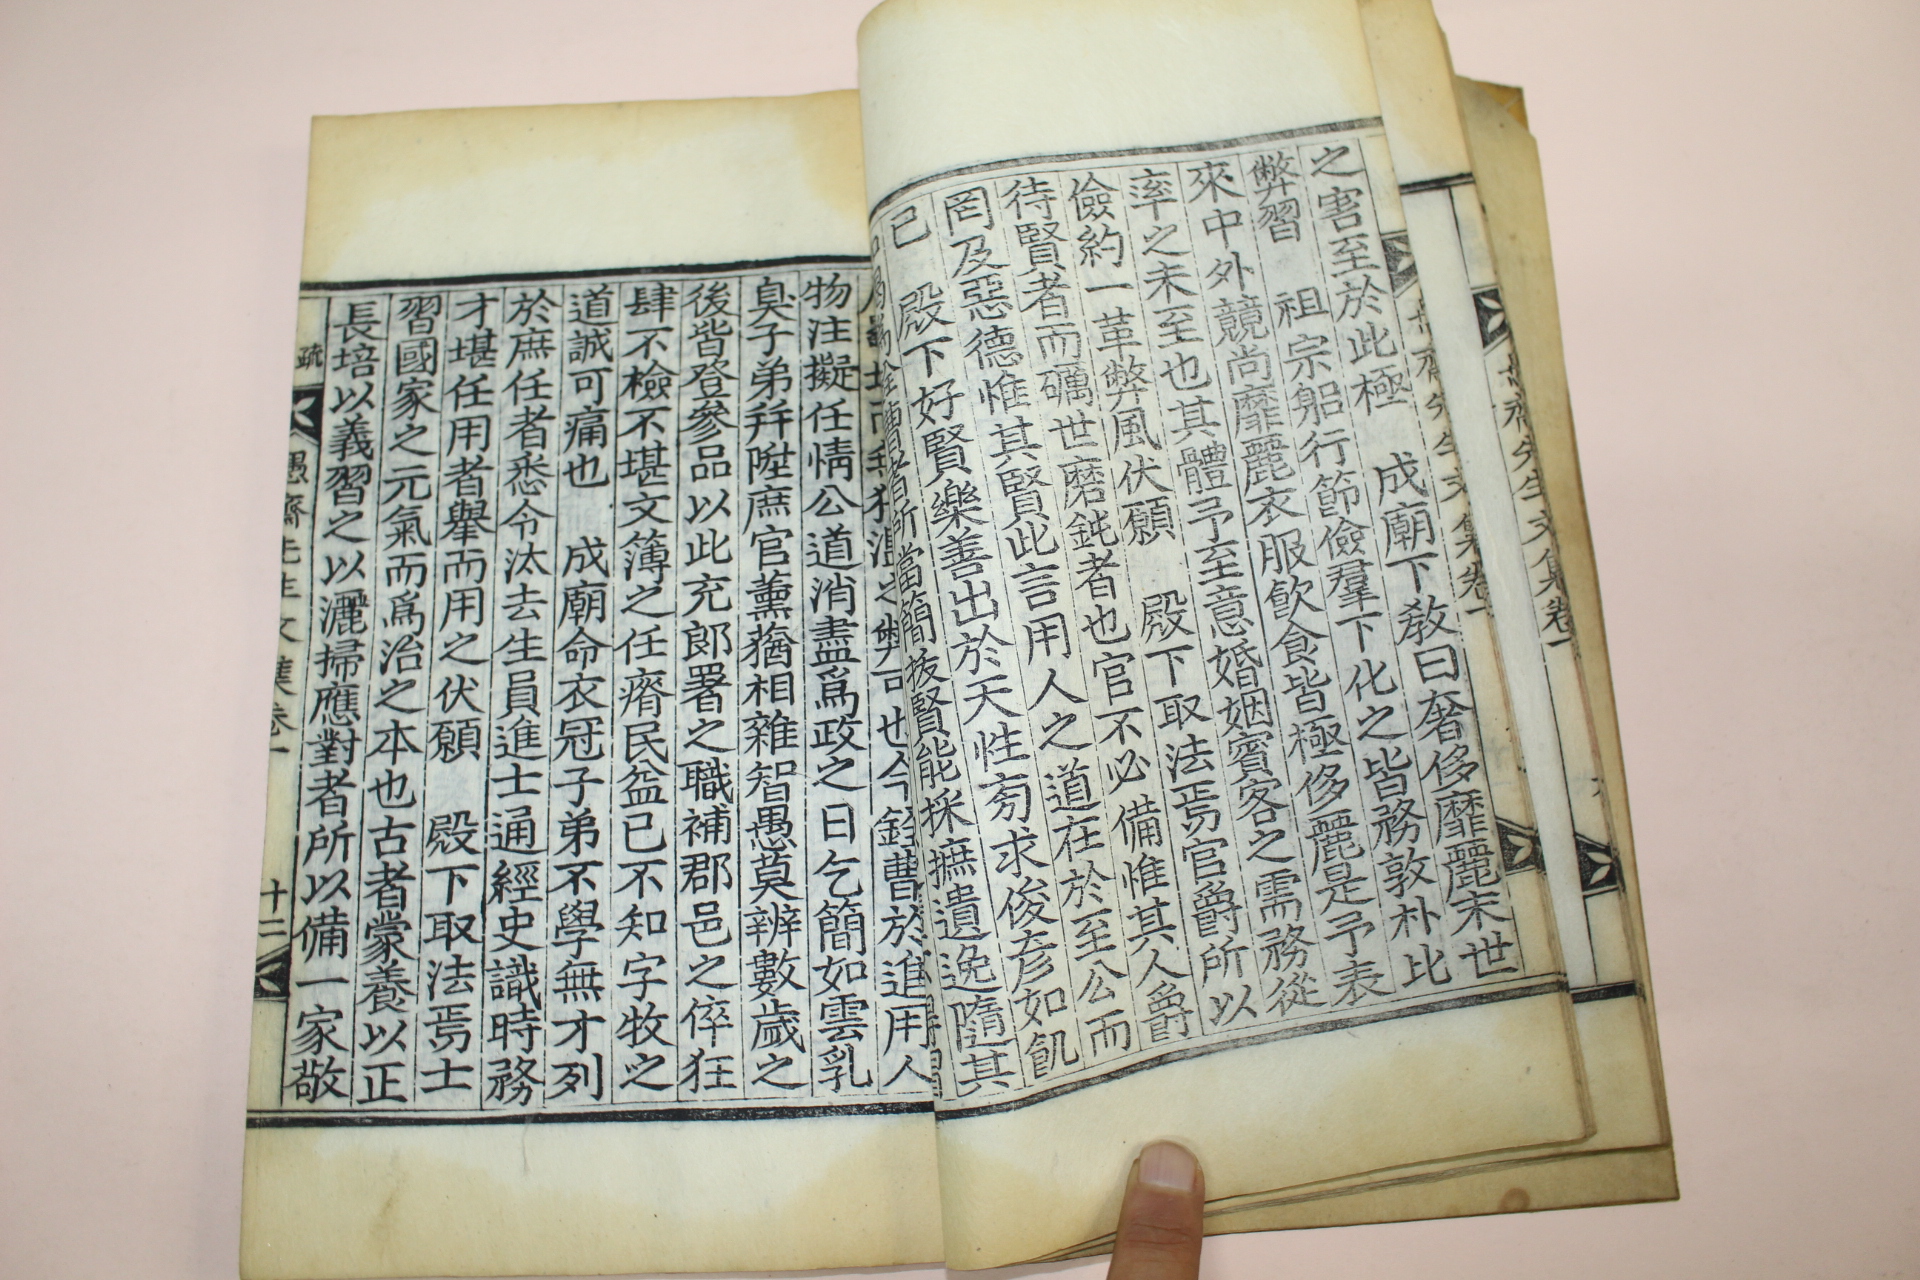 之害至於此極　成廟下敎曰奢侈靡麗末世
弊習　祖宗躬行節儉羣下化之皆務敦朴比
來中外競尙靡麗衣服飮食皆極侈麗是予表
率之未至也其體予至意婚姻賓客之需務從
儉約一革弊風伏願　殿下取法焉官爵所以
待賢者而礪世磨鈍者也官不必備惟其人爵
罔及惡德惟其賢此言用人之道在於至公而
已　殿下好賢樂善出於天性旁求俊彦如飢
所當簡拔賢能採摭遺逸隨其
也今銓曹於進用人
物注擬任情公道消盡爲政之日乞簡如雲乳
臭子弟幷陞庶官薰蕕相雜智愚莫辨數歲之
後皆登參品以此充郞署之職補郡邑之倅狂
肆不檢不堪文簿之任瘠民益已不知字牧之
道誠可痛也　成廟命衣冠子弟不學無才列
於庶任者悉令汰去生員進士通經史識時務
才堪任用者擧而用之伏願　殿下取法焉士
習國家之元氣而爲治之本也古者蒙養以正
長培以義習之以灑掃應對者所以備一家敬
疏
愚齋先生文集卷一
十二